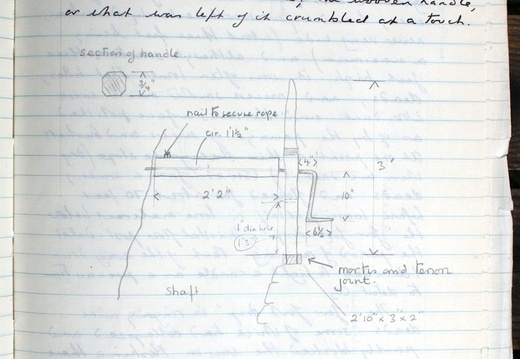 the wooden handle,
or what was left of it crumbled at a touch.
section of handle
3/4"
nail to secure rope
cir. 1'1½"
4"
3'
10"
2' 2"
1" dia hole
1'3"
6½"
mortis and tenon
joint.
Shaft
2'10" x 3" x 2"